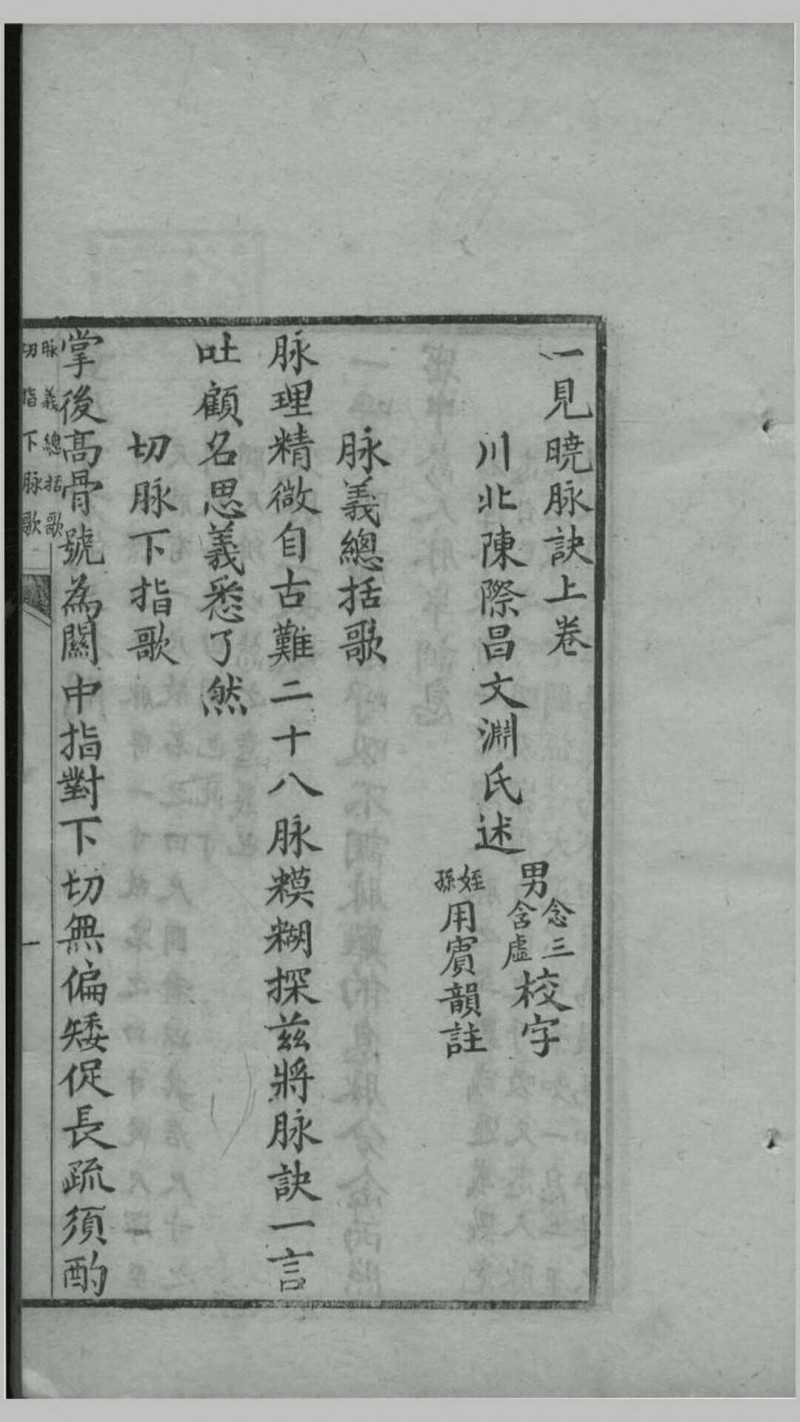 一見曉脉訣上卷
川北陳際昌文淵氏述
男
念三
含虛
校字
姪孫
用賓韻註
脉義總括歌
脉理精微自古難二十八脉糢糊探茲將脉訣一言
吐顧名思義悉了然
切脉下指歌
掌後高骨號為關中指對下切無偏矮促長疏須酌
脉義總括歌
切指下脉歌
一